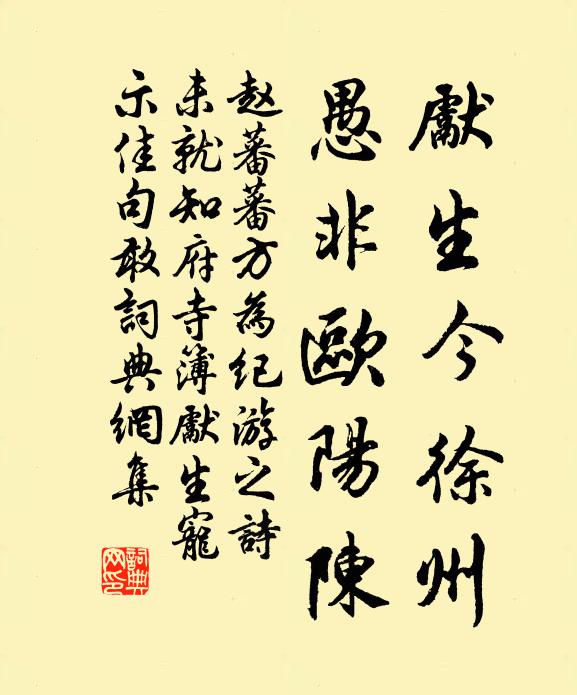 獻生今徐州
愚非歐陽陳
赵蕃蕃方為紀游之詩
未就知府寺簿獻生寵
示佳句敢詞典網集
詞典网印